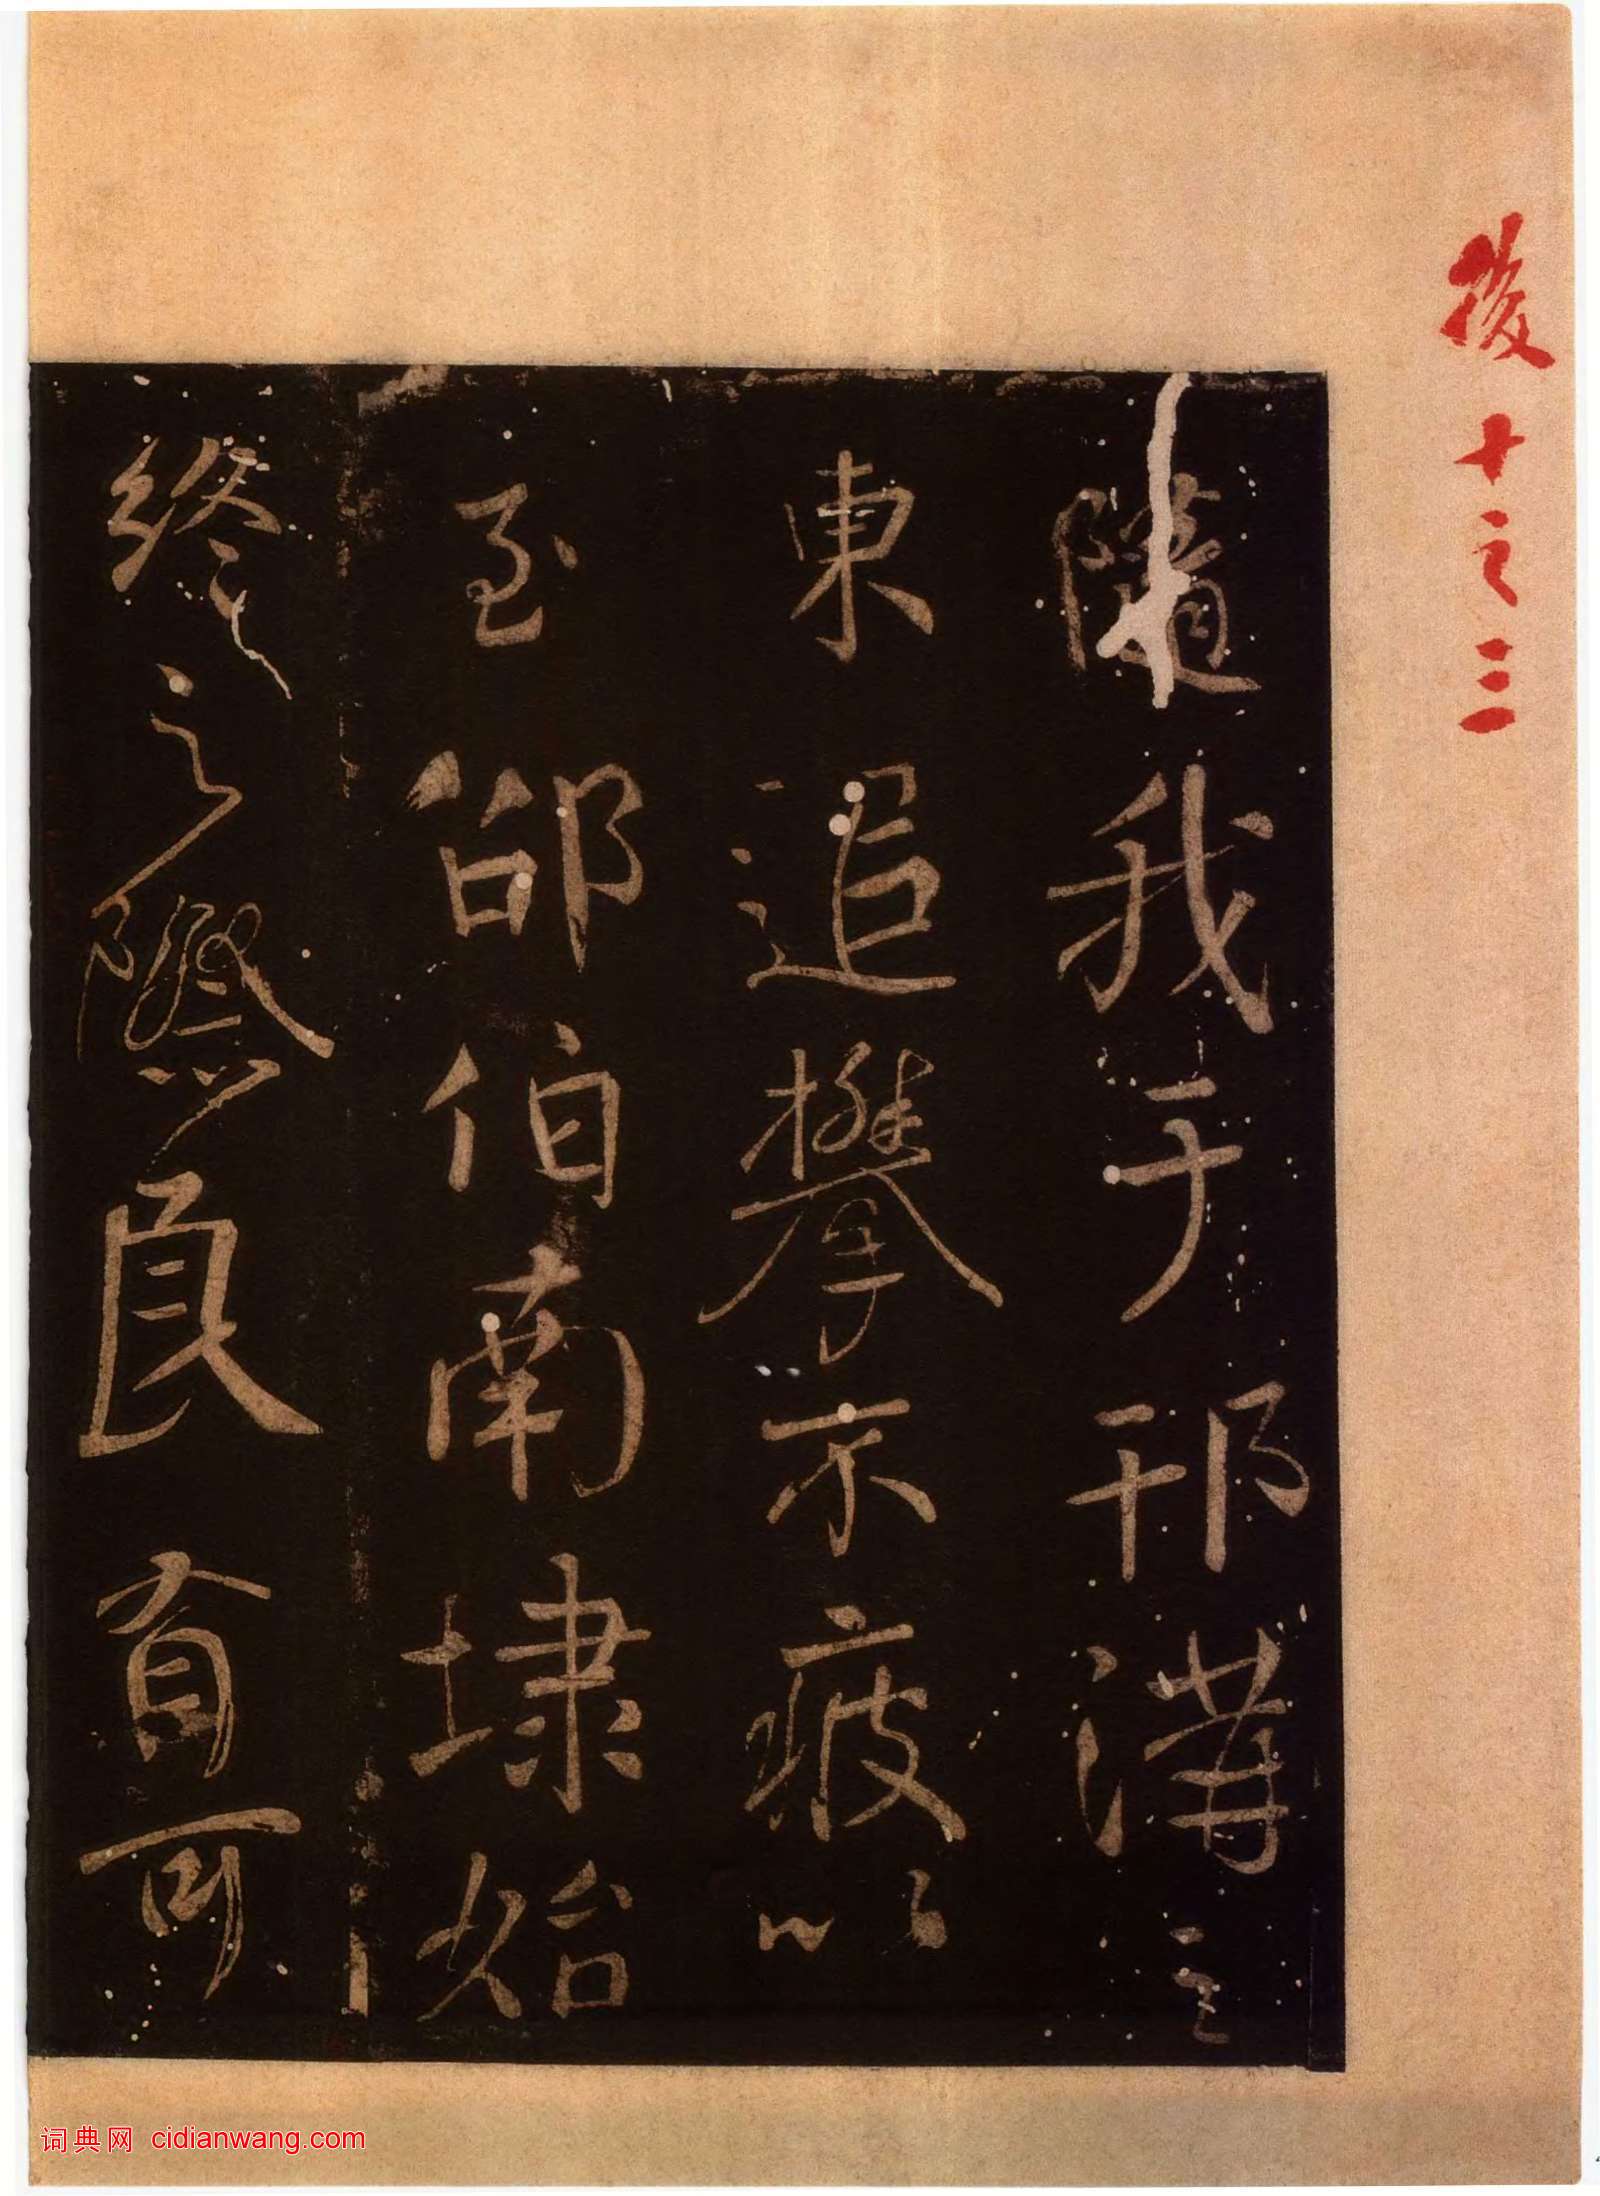 後十之三
隨我于邗溝之
東追攀不疲以
至邵伯南埭始
終之際良有可
词典网 cidianwang.com